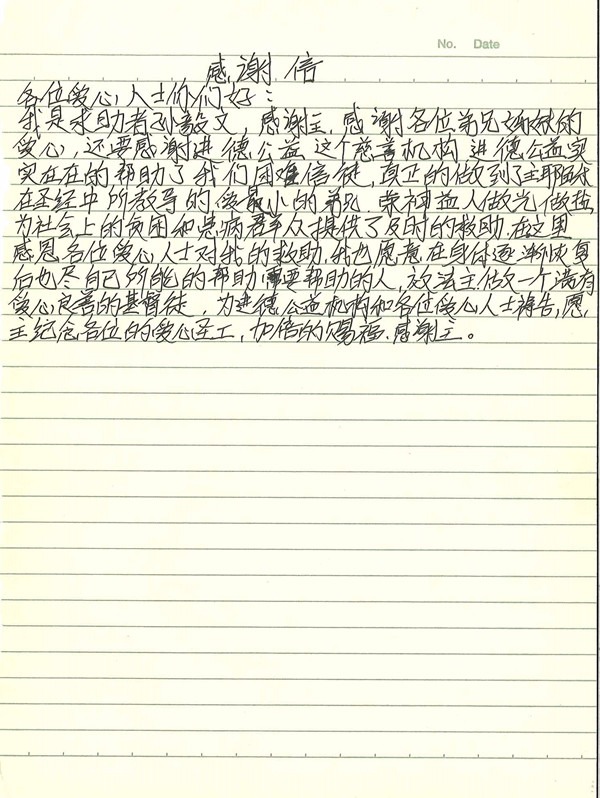 No. Date
感谢信
各位爱心人士你们好：
我是求助者孙毅文，感谢主，感谢各位弟兄姊妹的
爱心，还要感谢进德公益这个慈善机构，进德公益实
实在在的帮助了我们困难信徒，真正的做到了主耶稣
在圣经中所教导的爱最小的弟兄，荣神益人做光做盐
为社会上的贫困和患病群众提供了及时的救助，在这里
感恩各位爱心人士对我的救助，我也愿意在身体逐渐恢复
后也尽自己所能的帮助需要帮助的人，效法主做一个满有
爱心良善的基督徒，为进德公益机构和各位爱心人士祷告，愿
主纪念各位的爱心圣工，加倍的赐福，感谢主。